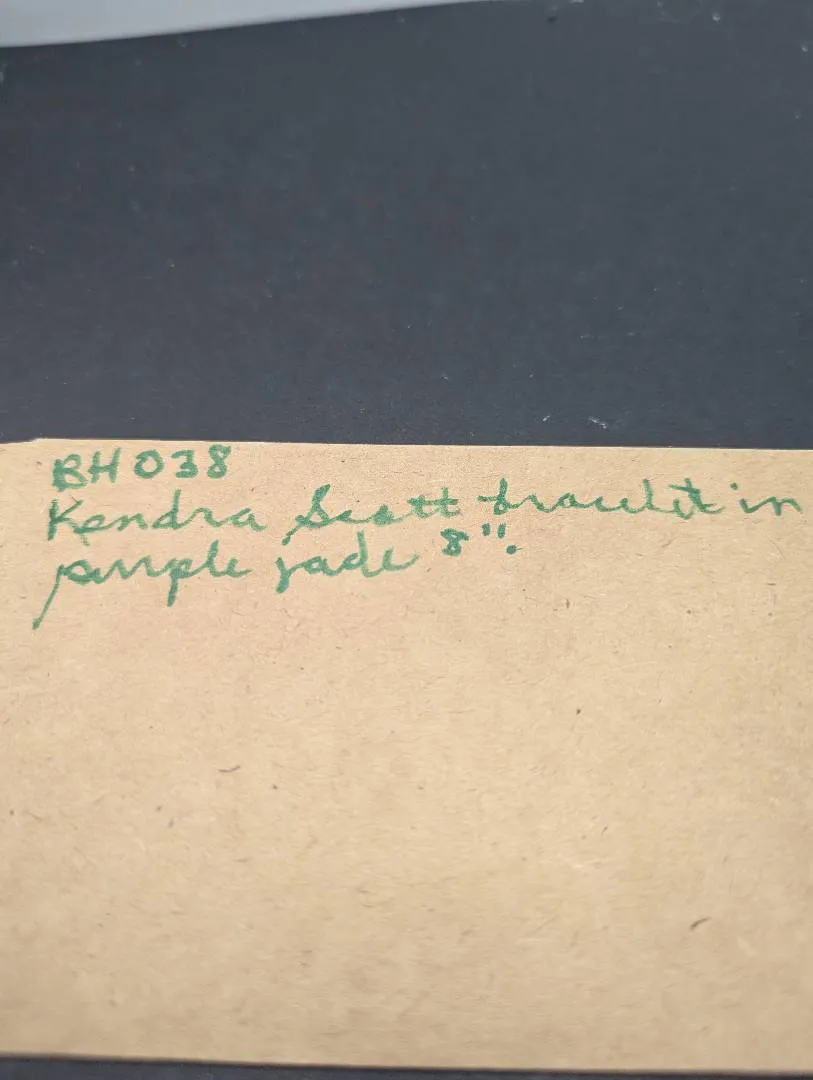 BH038
Kendra Scott bracelet in
purple jade 8".